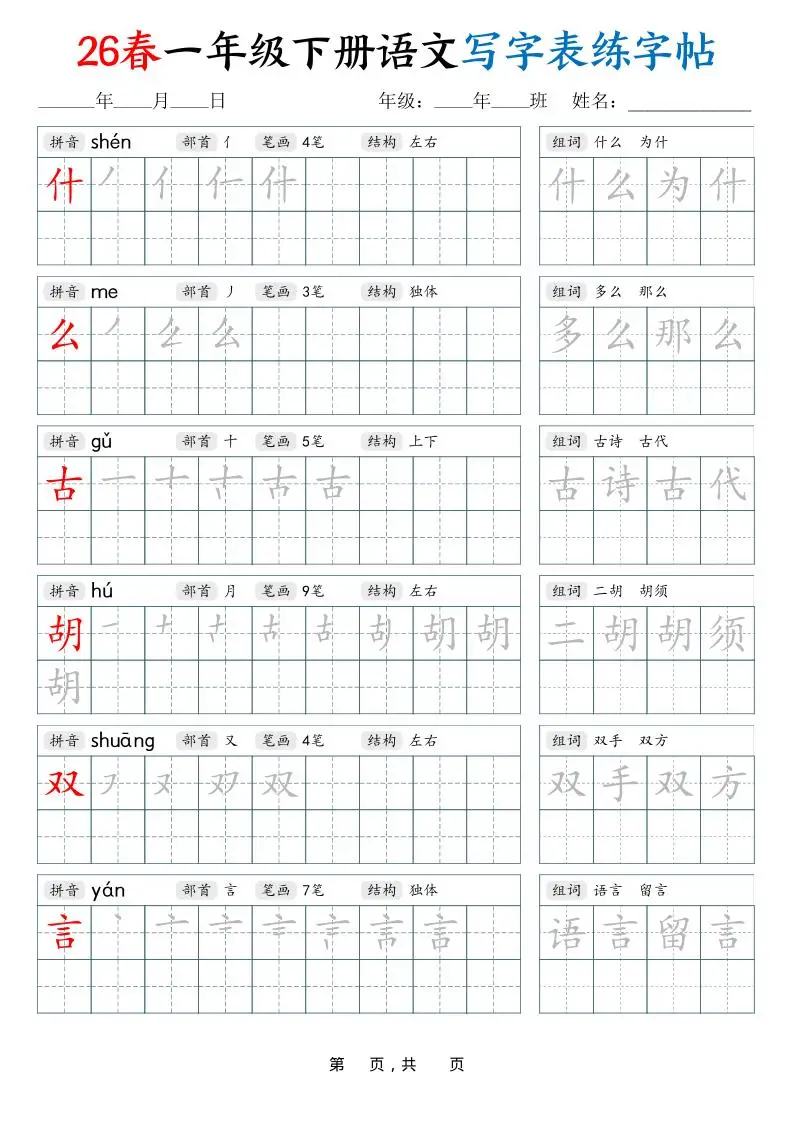 26春一年级下册语文写字表练字帖
______年____月____日 年级：____年____班 姓名：____________
拼音 shén 部首 亻 笔画 4笔 结构 左右 组词 什么 为什
什 丿 亻 仁 什 什 么 为 什
拼音 me 部首 丿 笔画 3笔 结构 独体 组词 多么 那么
么 丿 么 么 多 么 那 么
拼音 gǔ 部首 十 笔画 5笔 结构 上下 组词 古诗 古代
古 一 十 古 古 古 诗 古 代
拼音 hú 部首 月 笔画 9笔 结构 左右 组词 二胡 胡须
胡 一 十 古 胡 胡 二 胡 胡 须
胡
拼音 shuāng 部首 又 笔画 4笔 结构 左右 组词 双手 双方
双 フ 又 双 双 手 双 方
拼音 yán 部首 言 笔画 7笔 结构 独体 组词 语言 留言
言 丶 亠 言 语 言 留 言
第 页，共 页